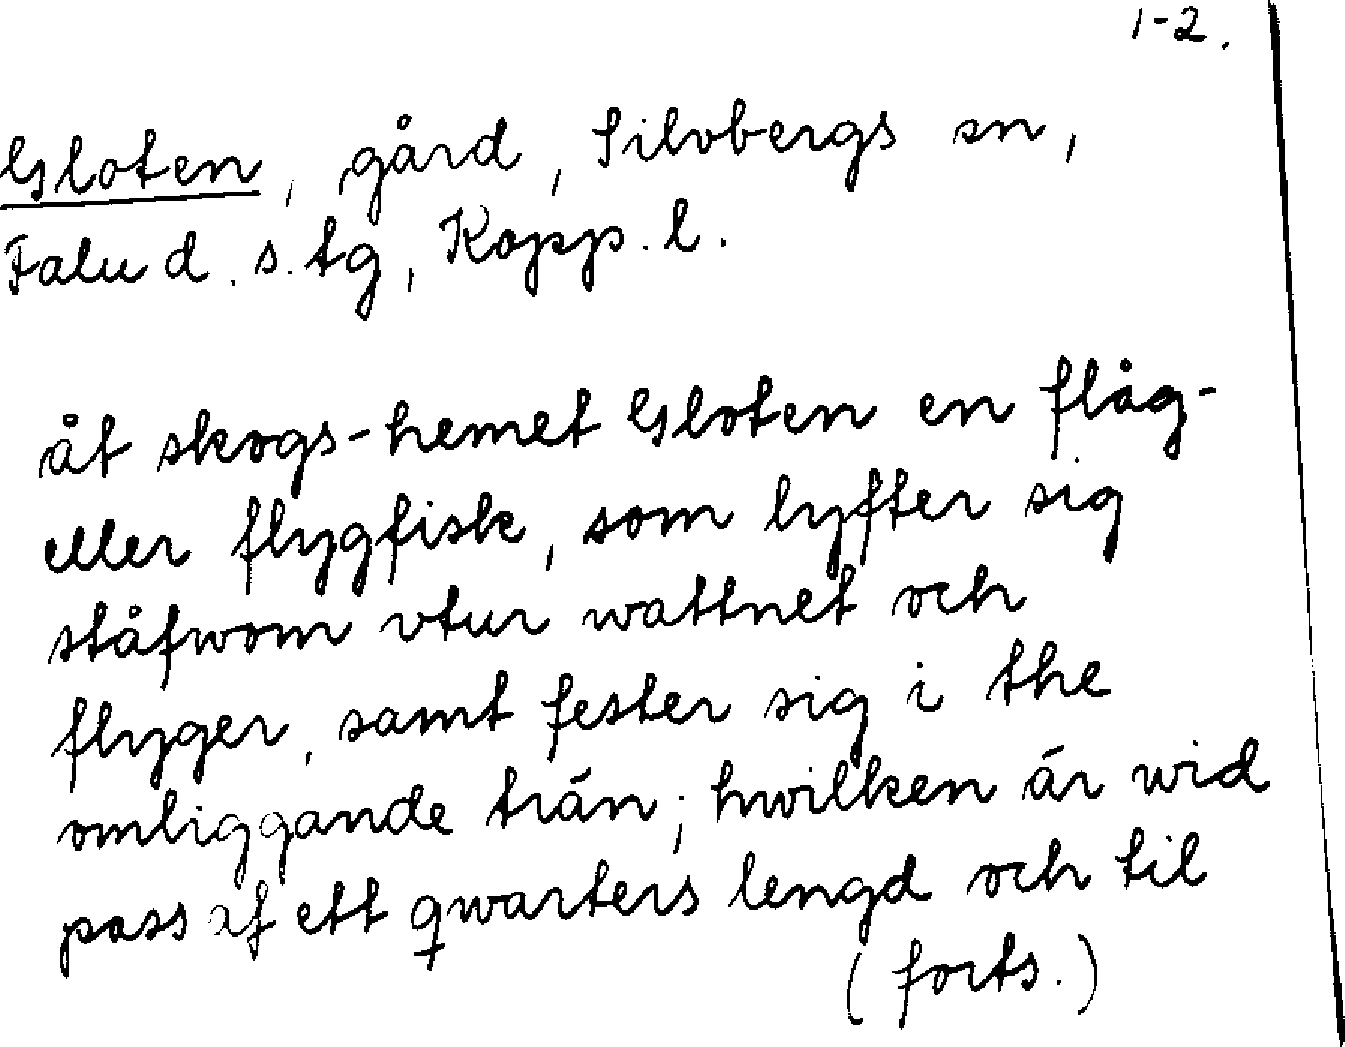 1-2.
Gloten, gård, Silvbergs sn,
Falu d. s. tg, Kopp. l.
åt skogs-hemet Gloten en flåg-
eller flygfisk, som lyfter sig
ståfwom vtur wattnet och
flyger, samt fester sig i the
omliggande trän; hwilken är wid
pass af ett qwarters lengd och til
(forts.)